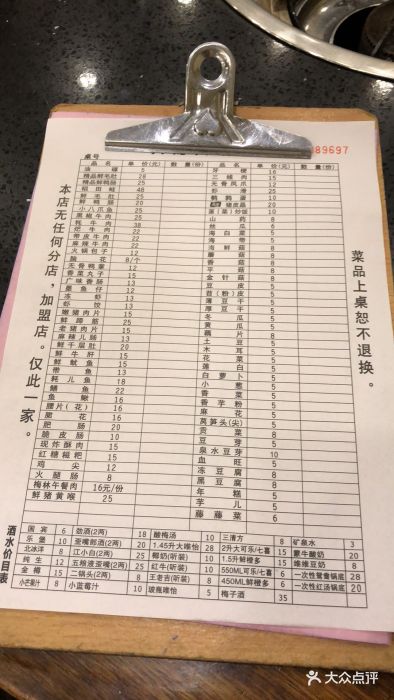 89697
桌号
品 名 单 价(元) 数 量(份) 品 名 单 价(元) 数 量(份)
油碟 5 牙梗 16
精品鲜毛肚 28 三线肉 15
精品鲜鸭肠 25 无骨凤爪 12
鲜毛肚 25
鲜鸭肠 20
小八爪鱼 25
黑椒牛肉 25
牦牛肉 38
麻辣牛肉 22
火锅包子 12
脑花 8/个
香菜丸子 15
广味香肠 13
嫩猪肉片 15
老猪肉片 15
麻辣儿肠 13
鲜千层肚 20
鲜牛肝 15
鲜鱿鱼 15
带鱼 13
耗儿鱼 18
鳝鱼 22
鱼鳅 16
腰片(花) 16
肥肠 20
脆皮肠 10
现炸酥肉 15
红糖糍粑 15
鸡尖 12
火腿肠 8
梅林午餐肉 16元/份
鲜猪黄喉 25
虾滑 25
鹌鹑蛋 10
蛋(菜)炒饭 10
山药 8
丝瓜 5
海白菜 5
海带 5
海鲜菇 8
蘑菇 8
香菇 8
平菇 8
金针菇 8
豆皮 5
苕(粉)皮 5
薄豆干 5
厚豆干 5
冬瓜 5
黄瓜 5
藕片 8
土豆 5
木耳 5
花菜 5
莲白 5
白萝卜 5
小葱 5
香菜 5
香芋粉 5
麻花 5
莴笋头(尖) 5
贡菜 8
豆芽 5
泉水豆芽 10
血旺 5
冻豆腐 8
黑豆腐 5
年糕 5
芋儿 5
藤藤菜 6
本店无任何分店,加盟店。仅此一家。
菜品上桌恕不退换。
酒水价目表
国宾 6 劲酒(2两) 18 酸梅汤 10 三清方 8 矿泉水 3
乐堡 10 歪嘴郎酒(2两) 25 1.45升大唯怡 20 2升大可乐/七喜 15 蒙牛酸奶 20
北冰洋 8 江小白(2两) 25 椰奶(新装) 10 1.5升鲜橙多 15 维维豆奶 8
纯生 12 五粮液歪嘴(2两) 25 红牛(新装) 10 550ML可乐/七喜 6 一次性鸳鸯锅底 28
金樽 15 二锅头(2两) 15 王老吉(新装) 8 450ML鲜橙多 6 一次性红汤锅底 20
小芒果汁 8 小蓝莓汁 8 玻瓶唯怡 5 梅子酒 35
大众点评